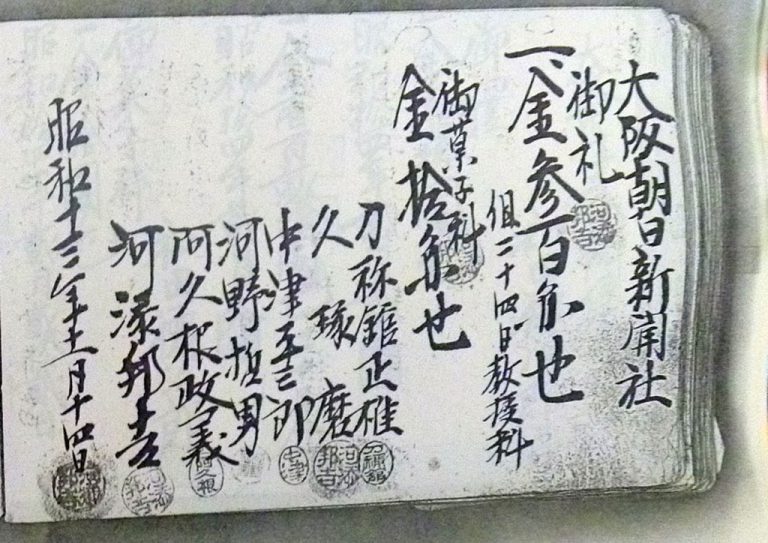 大阪朝日新聞社
御礼
一、金参百円也
但二十四日教授料
御菓子料
金拾円也
刀祢館正雄
久琢磨
中津平三郎
河野哲男
阿久根政義
河添邦吉
昭和十三年十一月十四日
中津
阿久根